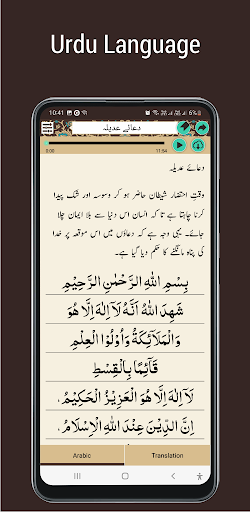 Urdu Language
10:41
6%
دعائے عدیلہ
0:00
11:54
دعائے عدیلہ
وقتِ احتضار شیطان حاضر ہو کر وسوسہ اور شک پیدا
کرنا چاہتا ہے تا کہ انسان اس دنیا سے بلا ایمان چلا
جائے۔ یہی وجہ ہے کہ دعاؤں میں اس موقعہ پر خدا
کی پناہ مانگنے کا حکم ہے۔
بِسْمِ اللهِ الرَّحْمٰنِ الرَّحِيْمِ
شَهِدَ اللهُ اَنَّهٗ لَاۤ اِلٰهَ اِلَّا هُوَ
وَالْمَلَآئِكَةُ وَاُولُوْا الْعِلْمِ
قَآئِمًا بِالْقِسْطِ
لَاۤ اِلٰهَ اِلَّا هُوَ الْعَزِيْزُ الْحَكِيْمُ،
اِنَّ الدِّيْنَ عِنْدَ اللهِ الْاِسْلَامُ،
Arabic
Translation